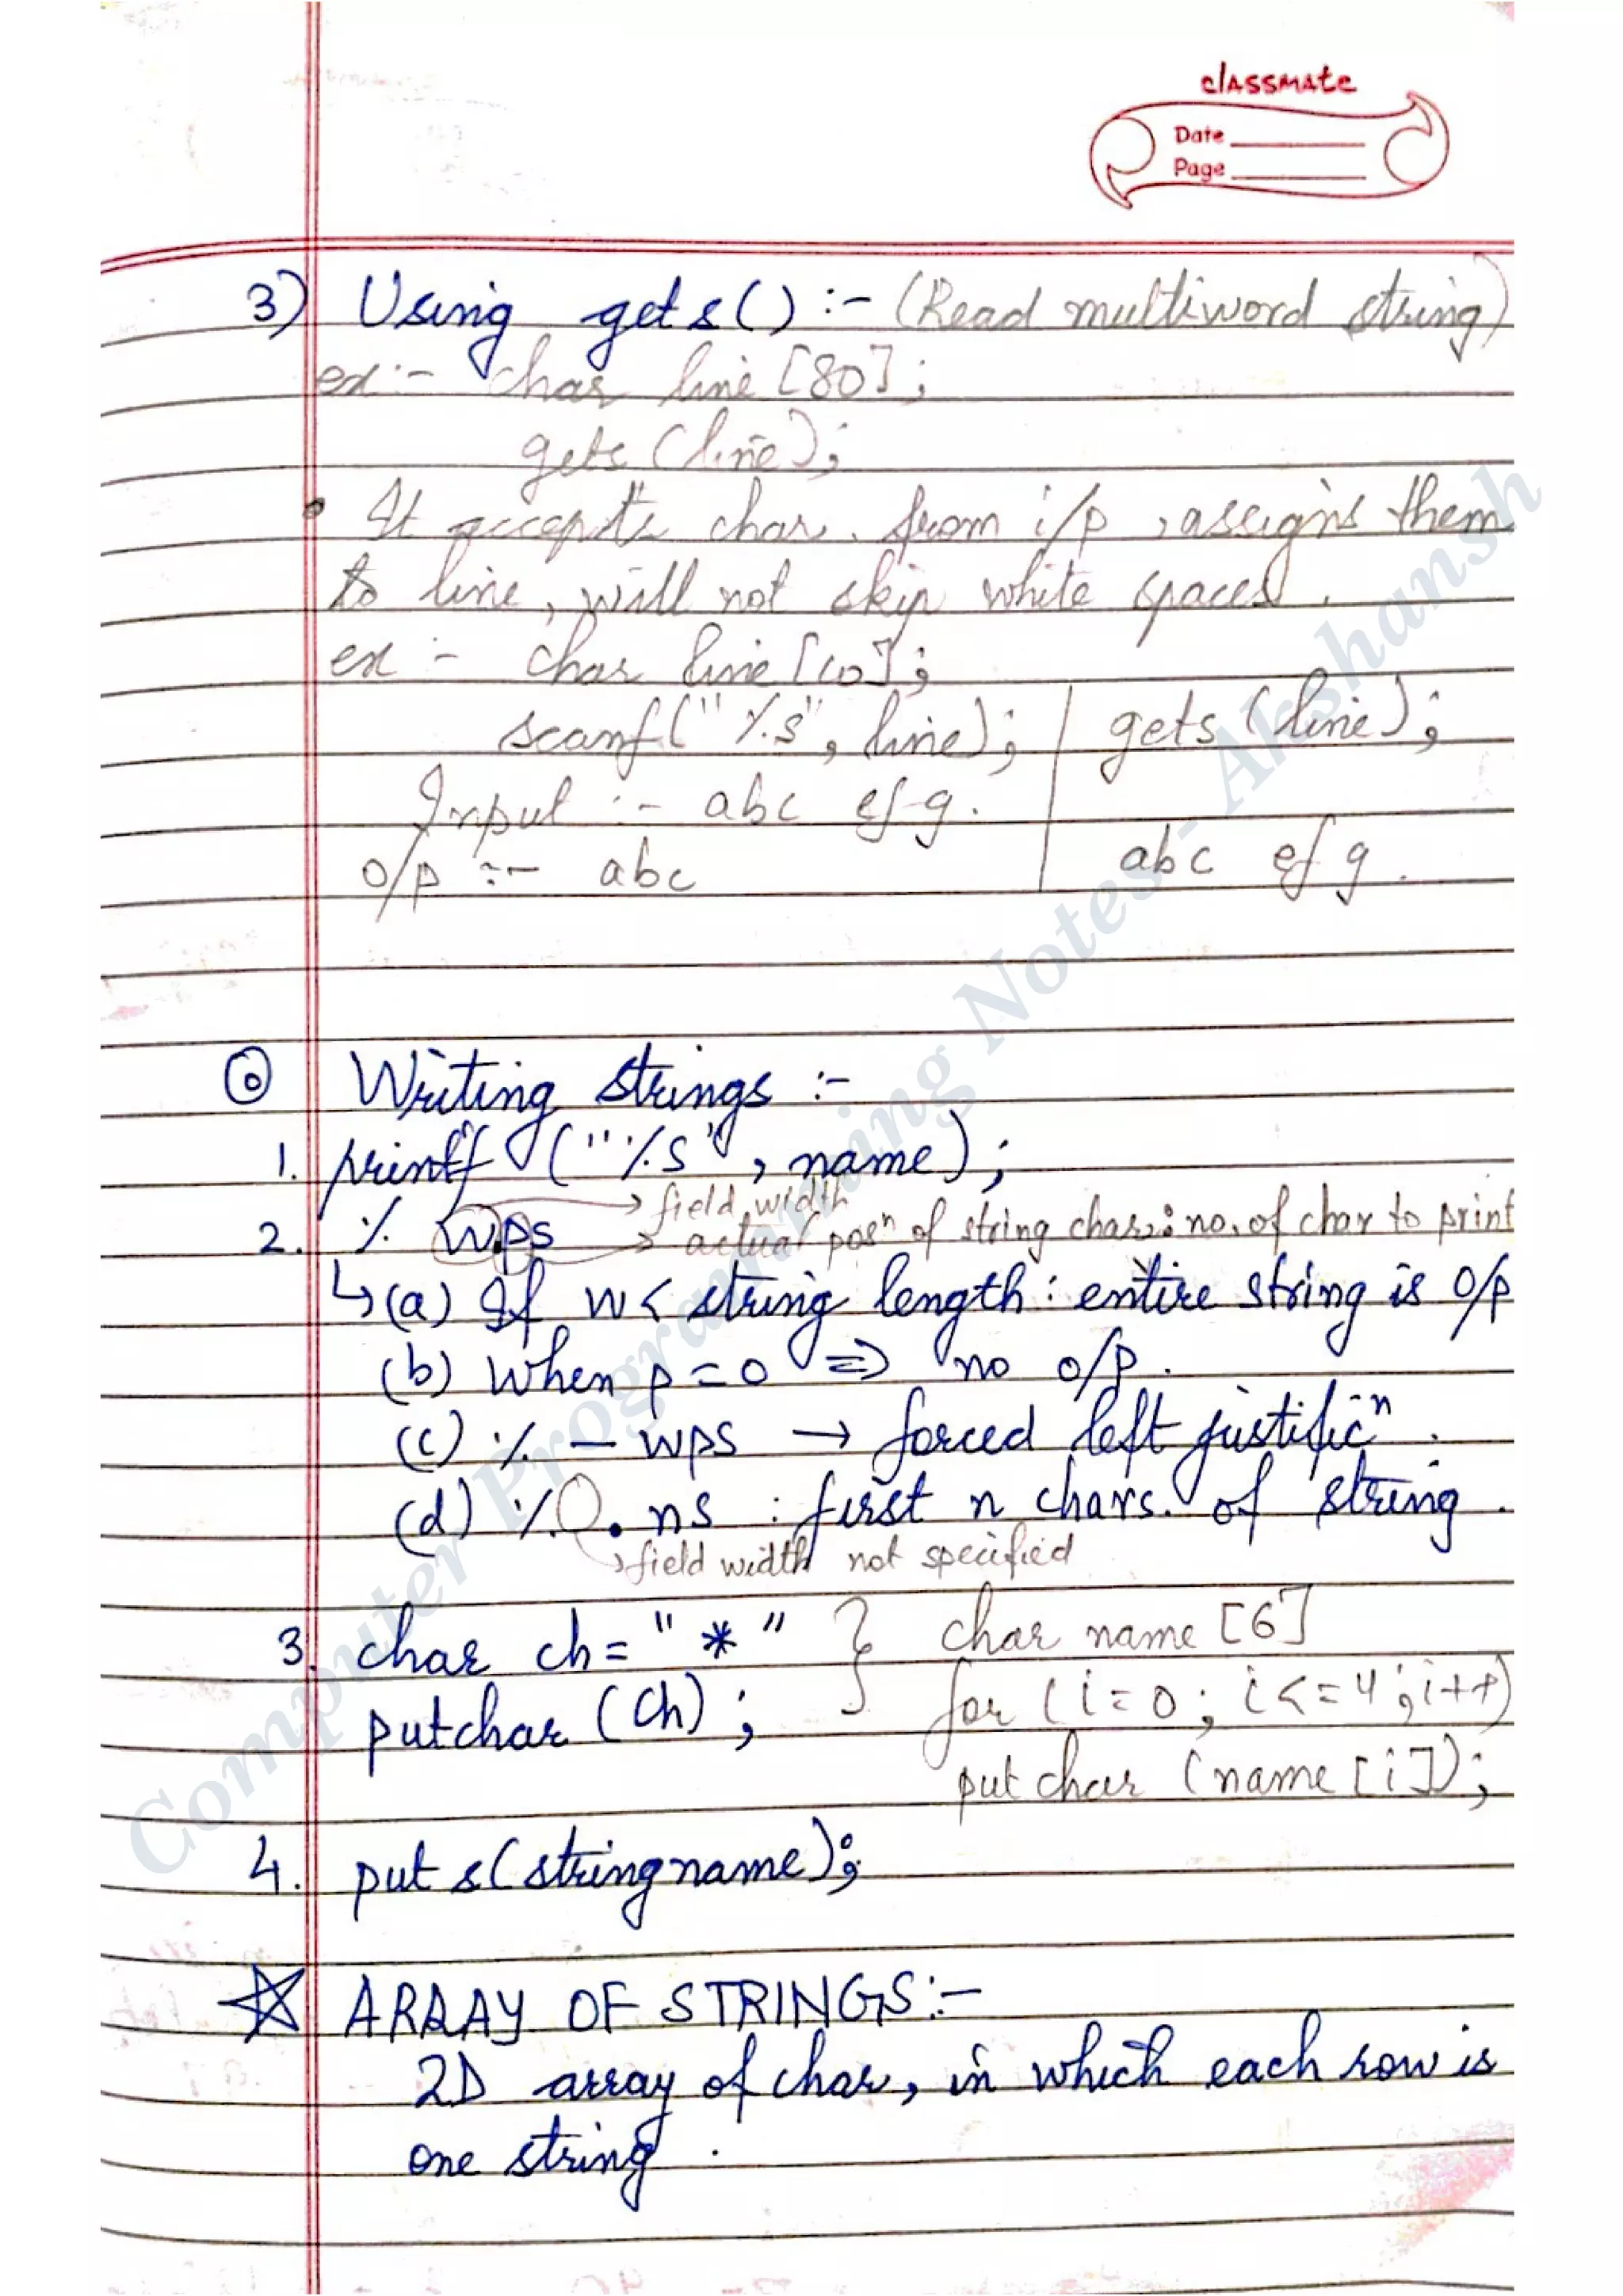 classmate
Date
Page
3) Using gets() :- (Read multiword string)
ex :- char line [80];
gets (line);
• It accepts char. from i/p, assigns them
to line, will not skip white spaces.
ex :- char line [10];
scanf("%s", line); | gets (line);
Input :- abc efg.
o/p :- abc | abc efg.
Writing strings :-
1. printf ("%s", name);
→ field width
2. % w.ps → actual posⁿ of string char: no. of char to print
↳ (a) If w < string length : entire string is o/p
(b) When p = 0 ⇒ no o/p.
(c) % - wps → forced left justificⁿ.
(d) % . ns : first n chars. of string.
→ field width not specified
3. char ch = "*" } char name [6]
putchar (ch); for (i=0; i<=4; i++)
putchar (name [i]);
4. puts(stringname);
☆ ARRAY OF STRINGS:-
2D array of char, in which each row is
one string.
Computer Programming Notes - Akshansh